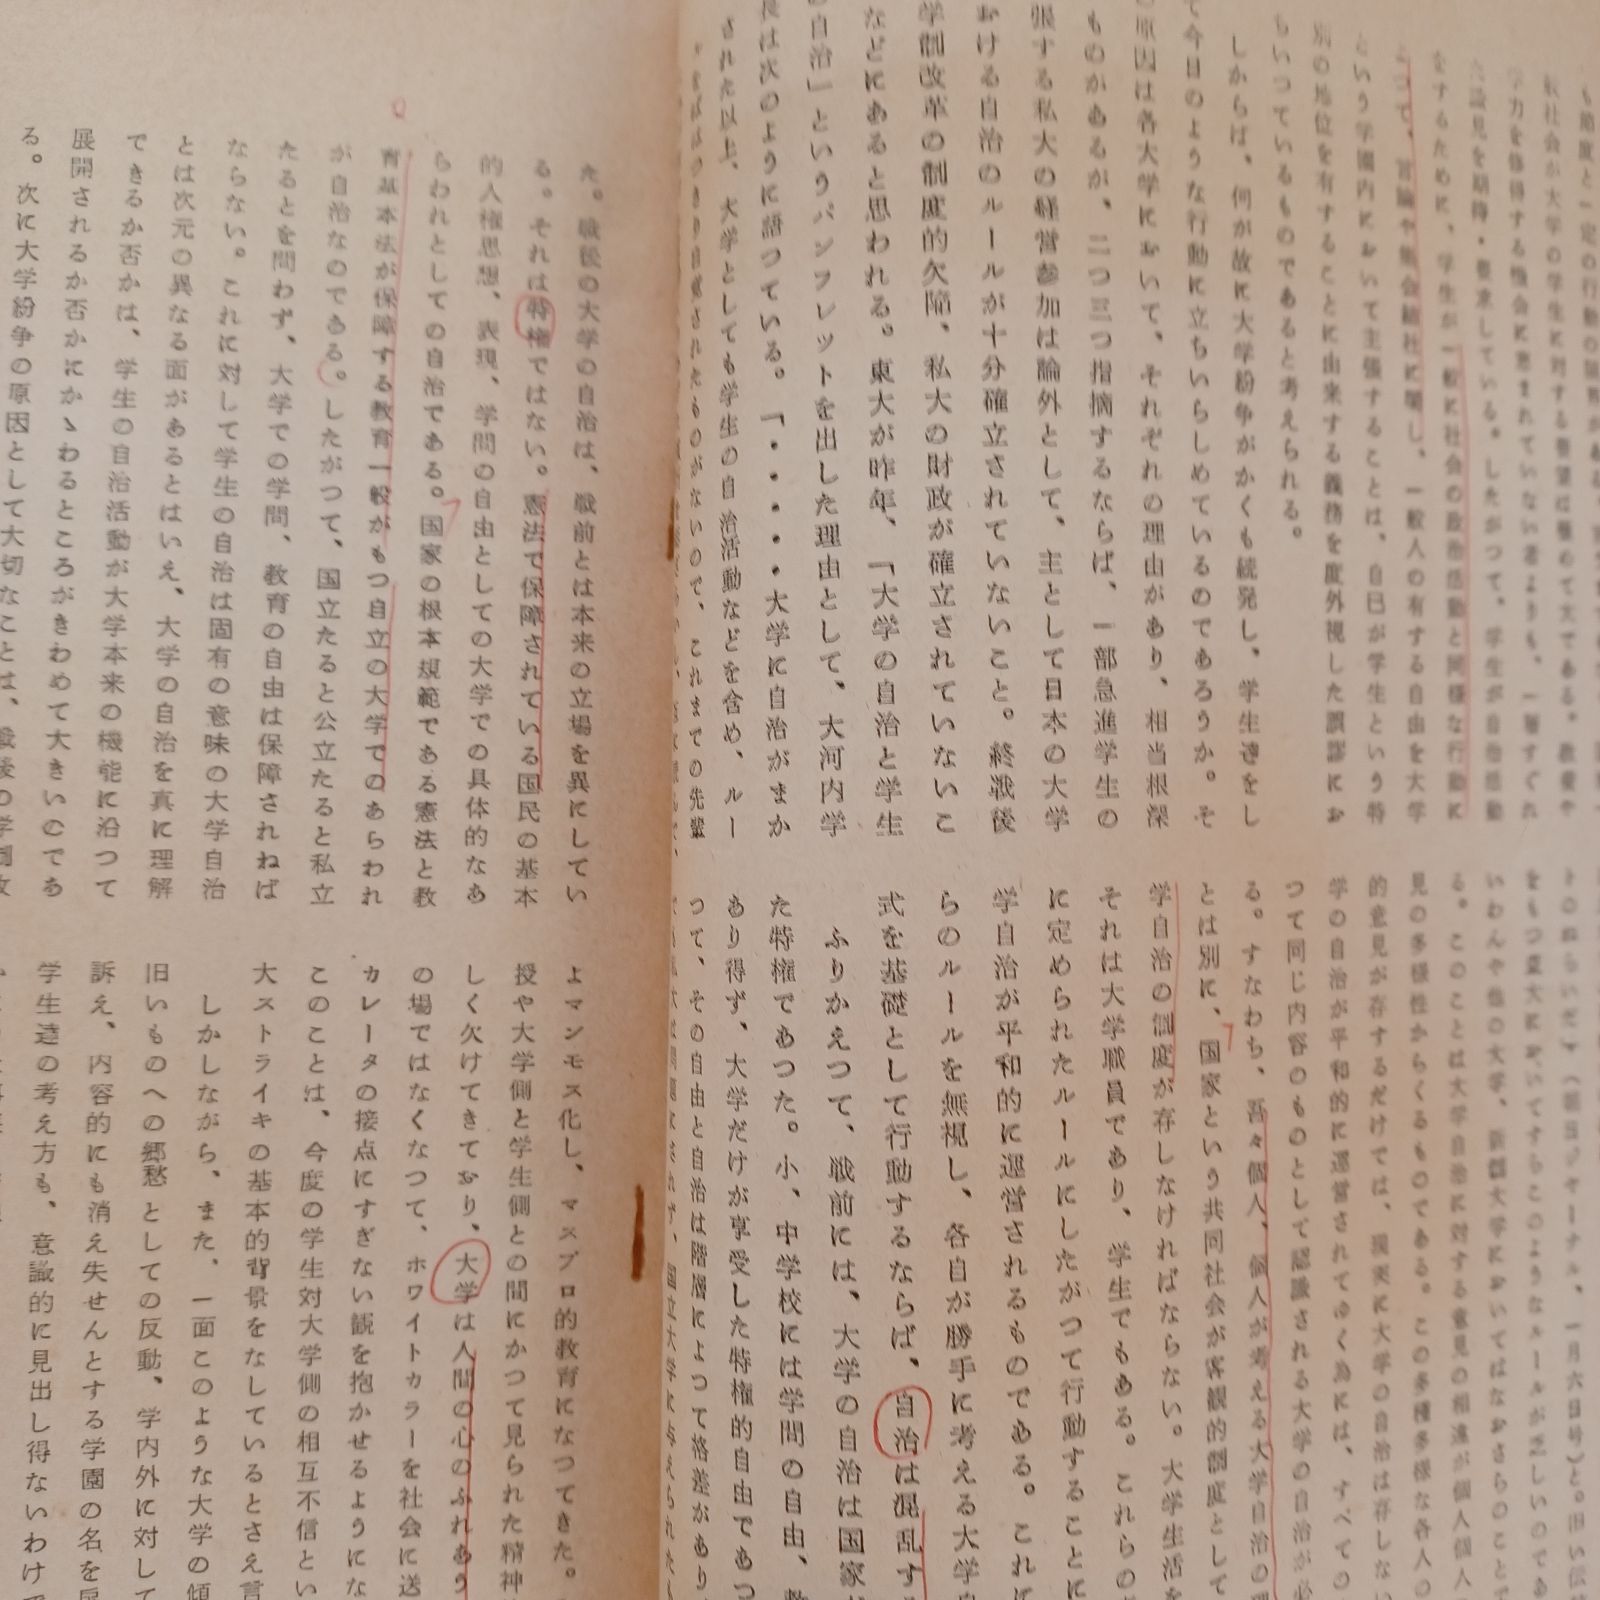 般社会が大学の学生に対する要望は極めて大である。教養や
学力を修得する機会に恵まれていない者よりも、一層すぐれ
た識見を期待・要求している。したがつて、学生が自治活動
をするために、学生が一般に社会の政治活動と同様な行動に
よつて、言論や集会結社に関し、一般人の有する自由を大学
という学園内において主張することは、自己が学生という特
別の地位を有することに由来する義務を度外視した誤謬にお
ちいつているものであると考えられる。
しからば、何が故に大学紛争がかくも続発し、学生達をし
て今日のような行動に立ちいらしめているのであろうか。そ
の原因は各大学において、それぞれの理由があり、相当根深
ものがあるが、二つ三つ指摘するならば、一部急進学生の
張する私大の経営参加は論外として、主として日本の大学
おける自治のルールが十分確立されていないこと。終戦後
学制改革の制度的欠陥、私大の財政が確立されていないこ
などにあると思われる。東大が昨年、「大学の自治と学生
の自治」というパンフレットを出した理由として、大河内学
長は次のように語つている。「・・・・・大学に自治がまか
された以上、大学としても学生の自治活動などを含め、ルー
されたものがないので、これまでの先輩
をもつ東大においてすらこのようなルールが乏しいのであ
いわんや他の大学、新制大学においてはなおさらのことで
る。このことは大学自治に対する意見の相違が個人個人
見の多様性からくるものである。この多種多様な各人の
的意見が存するだけでは、現実に大学の自治は存しな
学の自治が平和的に運営されてゆく為には、すべての
つて同じ内容のものとして認識される大学の自治が必
る。すなわち、吾々個人、個人が考える大学自治の理
とは別に、国家という共同社会が客観的制度として
学自治の制度が存しなければならない。大学生活を
それは大学職員であり、学生でもある。これらの
に定められたルールにしたがつて行動することに
学自治が平和的に運営されるものである。これに
らのルールを無視し、各自が勝手に考える大学自
式を基礎として行動するならば、自治は混乱す
ふりかえつて、戦前には、大学の自治は国家
た特権であつた。小、中学校には学問の自由、
あり得ず、大学だけが享受した特権的自由であつ
つて、その自由と自治は階層によつて格差があり
た。戦後の大学の自治は、戦前とは本来の立場を異にしてい
る。それは特権ではない。憲法で保障されている国民の基本
的人権思想、表現、学問の自由としての大学での具体的なあ
らわれとしての自治である。国家の根本規範である憲法と教
育基本法が保障する教育一般がもつ自立の大学でのあらわれ
が自治なのである。したがつて、国立たると公立たると私立
たるとを問わず、大学での学問、教育の自由は保障されねば
ならない。これに対して学生の自治は固有の意味の大学自治
とは次元の異なる面があるとはいえ、大学の自治を真に理解
できるか否かは、学生の自治活動が大学本来の機能に沿つて
展開されるか否かにかゝわるところがきわめて大きいのであ
る。次に大学紛争の原因として大切なことは、戦後の学制改
よマンモス化し、マスプロ的教育になつてきた。
授や大学側と学生側との間にかつて見られた精神
しく欠けてきており、大学は人間の心のふれあう
の場ではなくなつて、ホワイトカラーを社会に送
カレータの接点にすぎない観を抱かせるようにな
このことは、今度の学生対大学側の相互不信とい
大ストライキの基本的背景をなしているとさえ言
しかしながら、また、一面このような大学の傾
旧いものへの郷愁としての反動、学内外に対して
訴え、内容的にも消え失せんとする学園の名を
学生達の考え方も、意識的に見出し得ないわけで